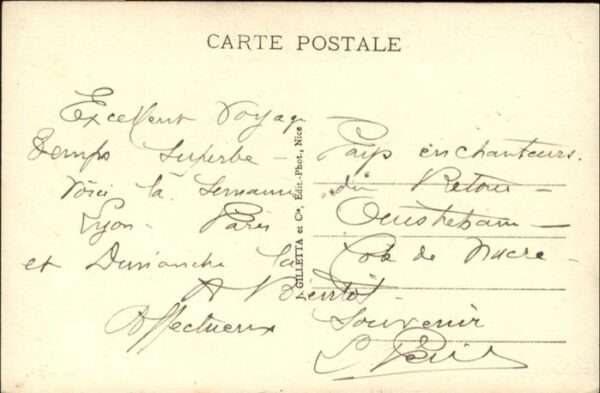 CARTE POSTALE
Excellent Voyage
temps superbe — Pays enchanteurs.
Voici la semaine du Retour —
Lyon — Paris Ouistreham —
et Dimanche la Cote de Nacre —
A Bientôt.
Affectueux souvenir
GILLETTA et Cie, Edit.-Phot., Nice